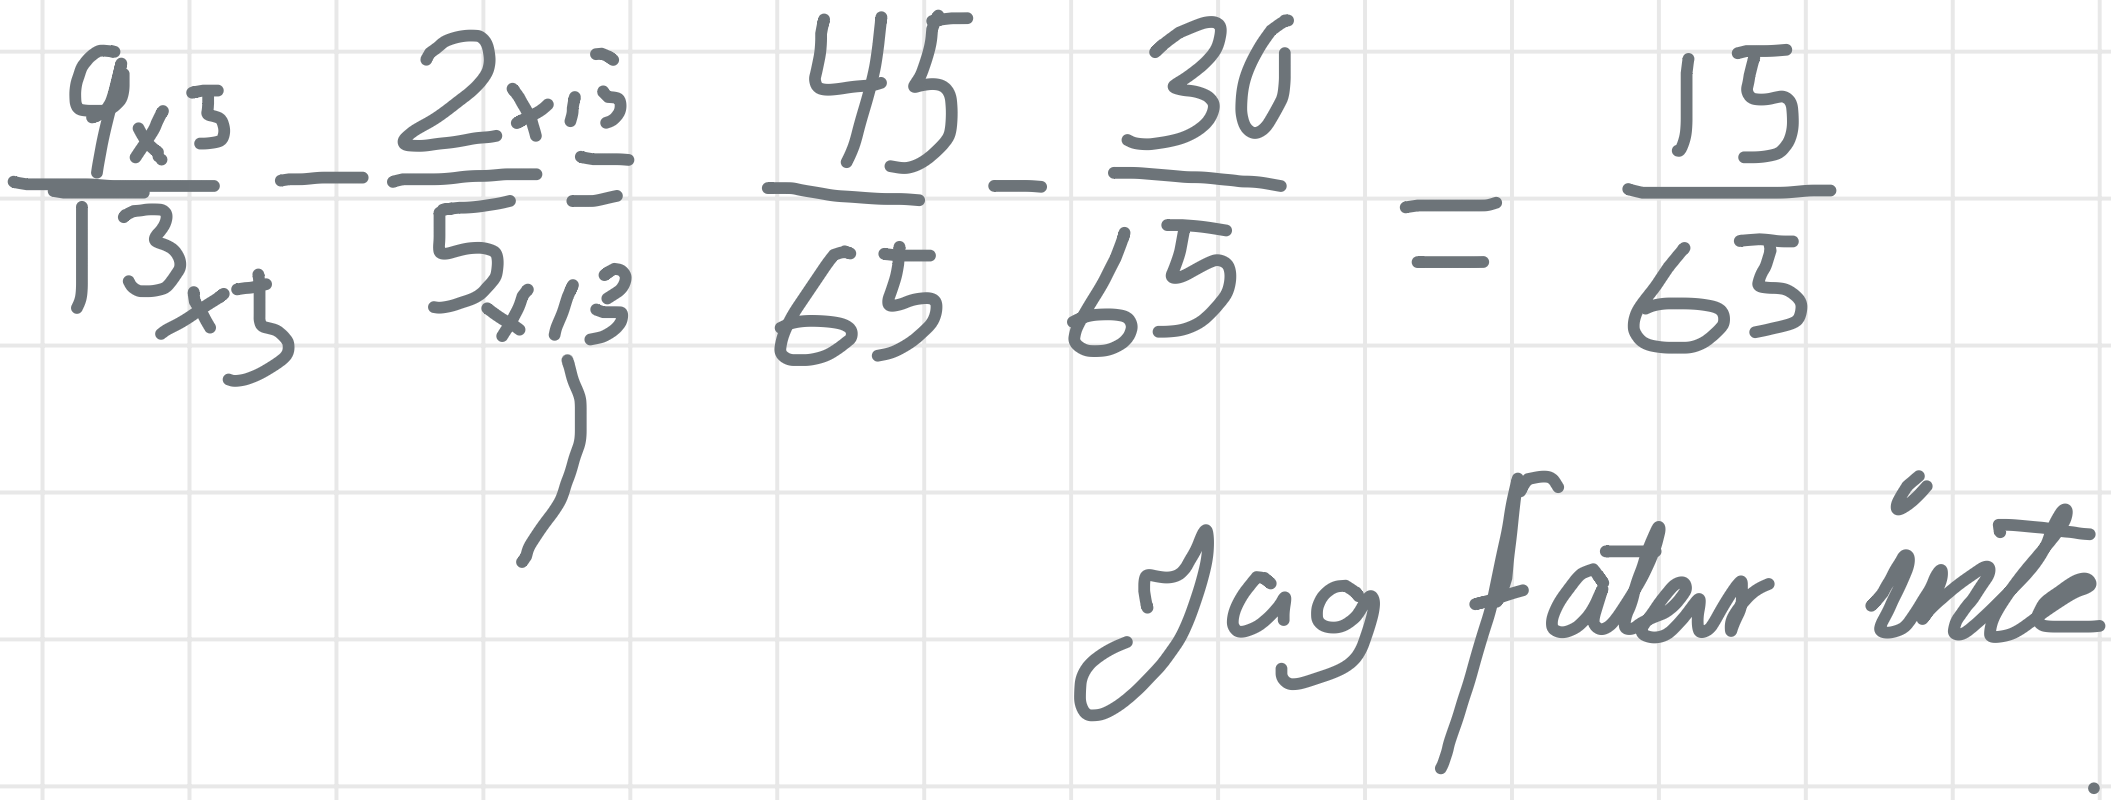 9x5/13x5 - 2x13/5x13 = 45/65 - 30/65 = 15/65
Jag fatar inte